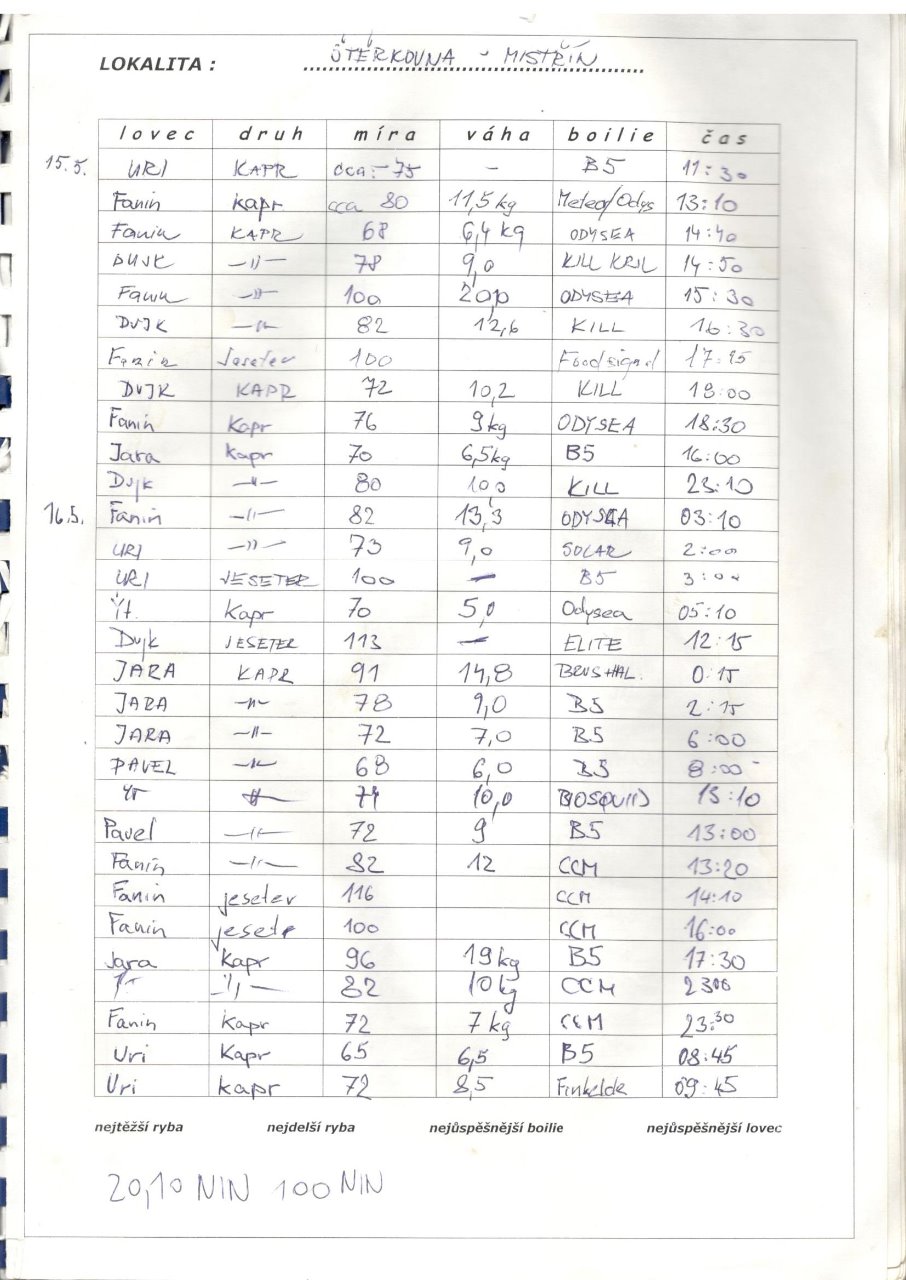 LOKALITA : ŠTĚRKOVNA - MISTŘÍN
lovec druh míra váha boilie čas
15.5. URI KAPR cca - 75 - B5 11:30
Fanin kapr cca 80 11,5 kg Meteo/Odys 13:10
Fanin KAPR 68 6,4 kg ODYSEA 14:40
DUJK —||— 78 9,0 KILL KRIL 14:50
Fanin —||— 100 20,0 ODYSEA 15:30
DUJK —||— 82 12,6 KILL 16:30
Fanin Jeseter 100 Foodsignal
DUJK KAPR 72 10,2 KILL
Fanin Kapr 76 9kg ODYSEA 18:30
Jara Kapr 70 6,5kg B5 16:00
Dujk —||— 80 10,0 KILL 23:10
16.5. Fanin —||— 82 13,3 ODYSEA 03:10
URI —||— 73 9,0 SOLAR 2:00
URI JESETER 100 — B5 3:00
Yt. Kapr 70 5,0 Odysea 05:10
Dujk JESETER 113 — ELITE 12:15
JARA KAPR 91 14,8 0:15
JARA —||— 78 9,0 B5 2:15
JARA —||— 72 7,0 B5 6:00
PAVEL —||— 68 6,0 B5 8:00
YT —||— 10,0 BIOSQUID 13:10
Pavel —||— 72 9 B5 13:00
Fanin —||— 82 12 CCM 13:20
Fanin jeseter 116 CCM 14:10
Fanin jesete 100 CCM 16:00
Jara Kapr 96 19 kg B5 17:30
—||— 82 10 kg CCM 2300
Fanin Kapr 72 7 kg CCM 23:30
Uri Kapr 65 6,5 B5 08:45
Uri kapr 72 8,5 Finkelde 09:45
nejtěžší ryba nejdelší ryba nejúspěšnější boilie nejúspěšnější lovec
20,10 NIN 100 NIN